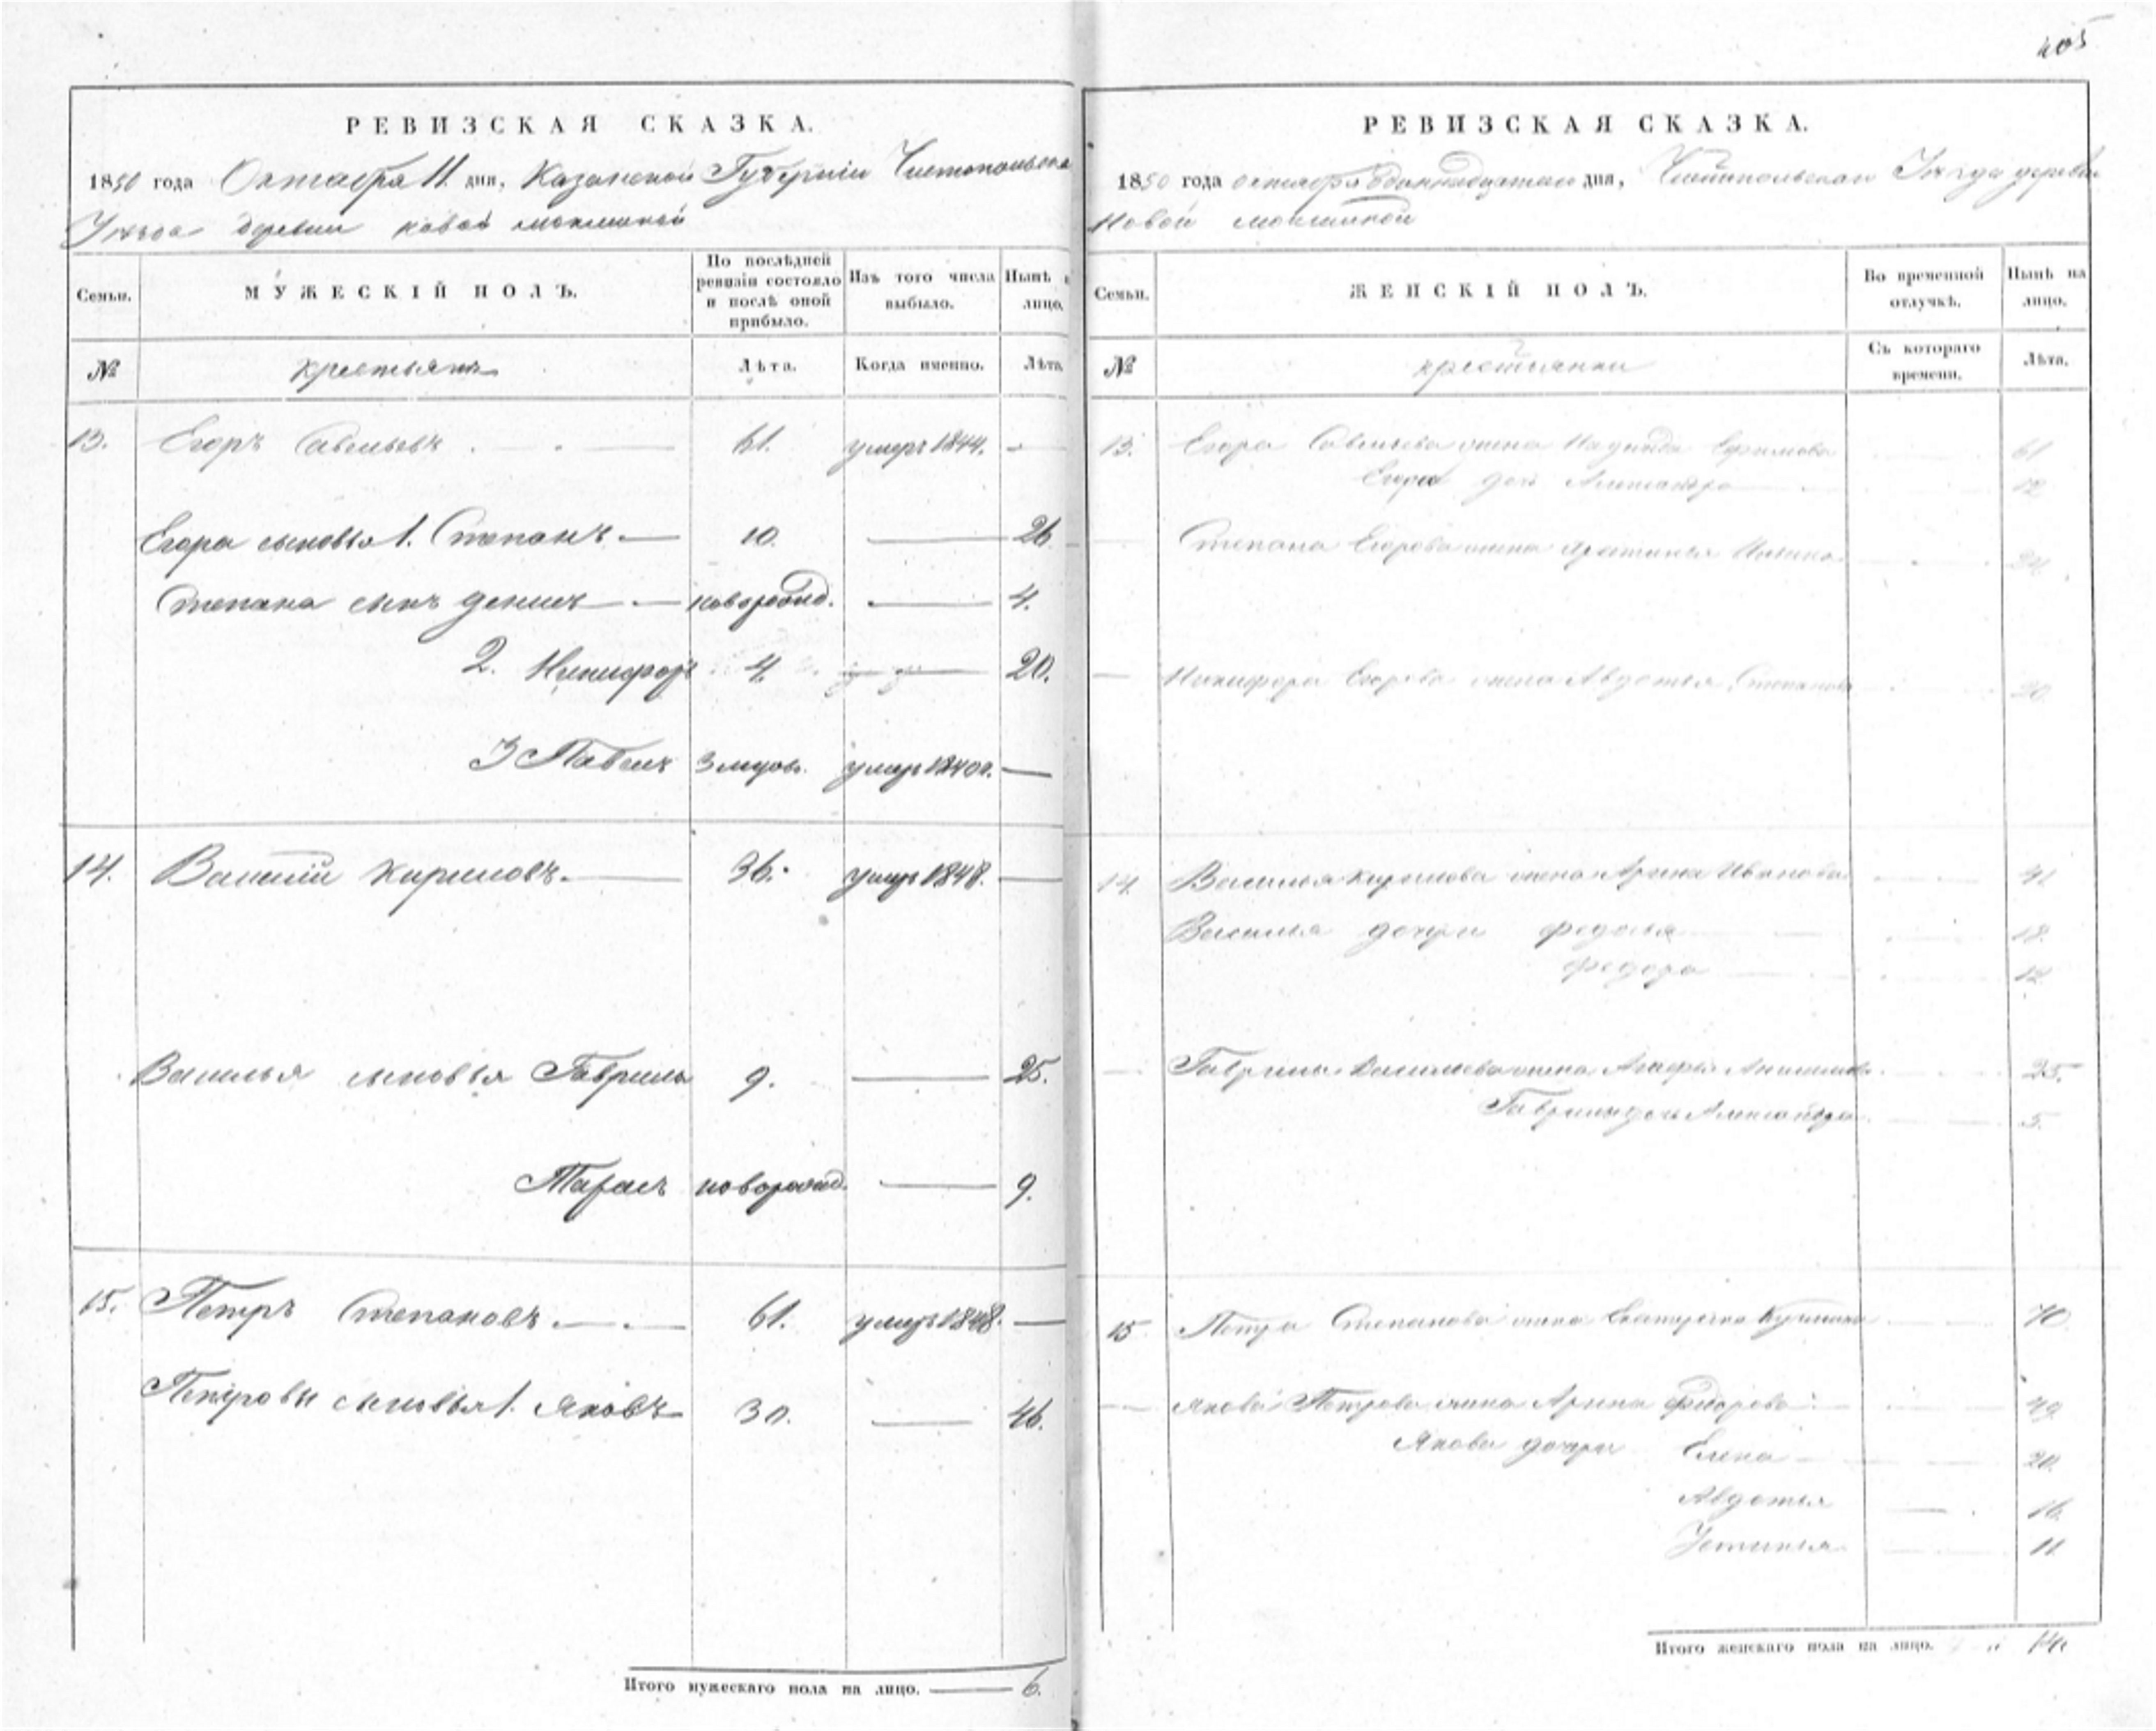 405
РЕВИЗСКАЯ СКАЗКА.
1850 года Октября 11. дня, Казанской Губернiи Чистопольска
Уѣзда деревни новой мокшиной
Семьи.
МУЖЕСКIЙ ПОЛЪ.
По послѣдней ревизiи состояло и послѣ оной прибыло.
Изъ того числа выбыло.
Нынѣ лицо.
№
крестьянъ
Лѣта.
Когда именно.
Лѣта.
13. Егоръ Савельевъ 61. умеръ 1844. —
Егора сыновья 1. Степанъ — 10. — 26
Степана сынъ денисъ — новорожд. — 4.
2. Никифоръ 4. — 20.
3 Павелъ 3 мѣсяц. умеръ 1840г. —
14. Василiй кириловъ. — 36. умеръ 1848. —
Василья сыновья Гаврила 9. — 25.
Тарасъ новорожд. — 9.
15. Петръ Степановъ — 61. умеръ 1848. —
Петровы сыновья 1. яковъ 30. — 46.
Итого мужескаго пола на лицо. — 6.
РЕВИЗСКАЯ СКАЗКА.
1850 года октября Одиннадцатаго дня, Чистопольскаго Уѣзда деревни
Новой мокшиной
Семьи.
ЖЕНСКIЙ ПОЛЪ.
Во временной отлучкѣ.
Нынѣ на лицо.
№
крестьянки
Съ котораго времени.
Лѣта.
13. Егора Савельева жена Надежда Ефимова 61
Егора дочь Александра 12
Степана Егорова жена 24
Никифора Егорова жена Авдотья Степанова 20
14. Василья кирилова жена Арина Иванова 41
Василья дочери федосья 18.
федора 12
Гаврилы Васильева жена Агафья 25.
Гаврилы дочь Александра 5.
15 Петра Степанова жена Екатерина 70
Якова Петрова жена Арина Федорова 49
Якова дочери Елена 20.
Авдотья 16.
Устинья 11
Итого женскаго пола на лицо. 14